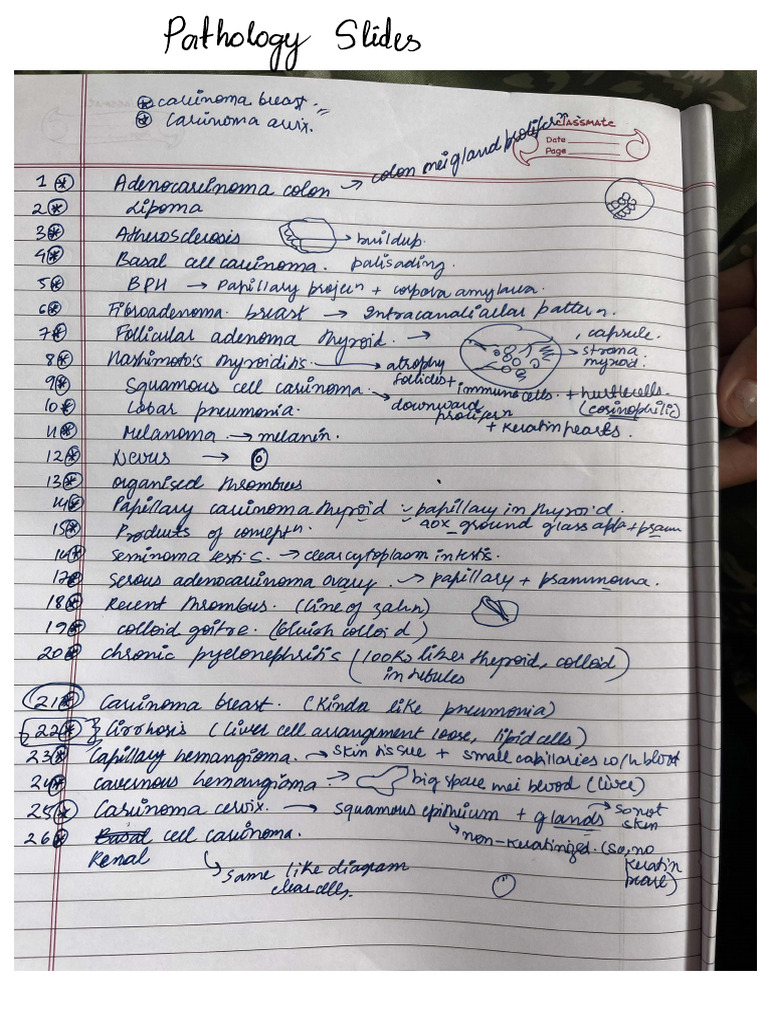 Pathology Slides
carcinoma breast.
Carcinoma cervix.
CLASSMATE
Date
Page
1 Adenocarcinoma colon → colon mei gland prolifern
2 Lipoma
3 Atherosclerosis → buildup.
4 Basal cell carcinoma. palisading.
5 BPH → Papillary projecn + corpora amylacea.
6 Fibroadenoma breast → Intracanalicular pattern.
7 Follicular adenoma thyroid. → , capsule.
→ stroma
myxoid.
8 Hashimoto's thyroiditis. → atrophy
follicles + immune cells. + hurtle cells.
(eosinophilic)
9 Squamous cell carcinoma. → downward
prolifern
+ Keratin pearls.
10 Lobar pneumonia.
11 Melanoma → melanin.
12 Nevus →
13 organised thrombus
14 Papillary carcinoma thyroid - papillary in thyroid.
- 40x ground glass app + psamm
15 Products of conceptn.
16 Seminoma testis. → clear cytoplasm in testis.
17 serous adenocarcinoma ovary. → papillary + psammoma.
18 Recent thrombus. (line of zahn)
19 colloid goitre. (bluish colloid)
20 chronic pyelonephritis (looks like thyroid, colloid)
in tubules
21 Carcinoma breast. (Kinda like pneumonia)
22 Cirrhosis (liver cell arrangement loose, lipid cells)
23 Capillary hemangioma. → skin tissue + small capillaries w/h blood
24 cavernous hemangioma → big space mei blood (liver)
25 Carcinoma cervix. → squamous epithium + glands → so not
skin
non-keratinized. (so, no
keratin
pearl)
26 Basal cell carcinoma.
Renal
same like diagram
clear cells.